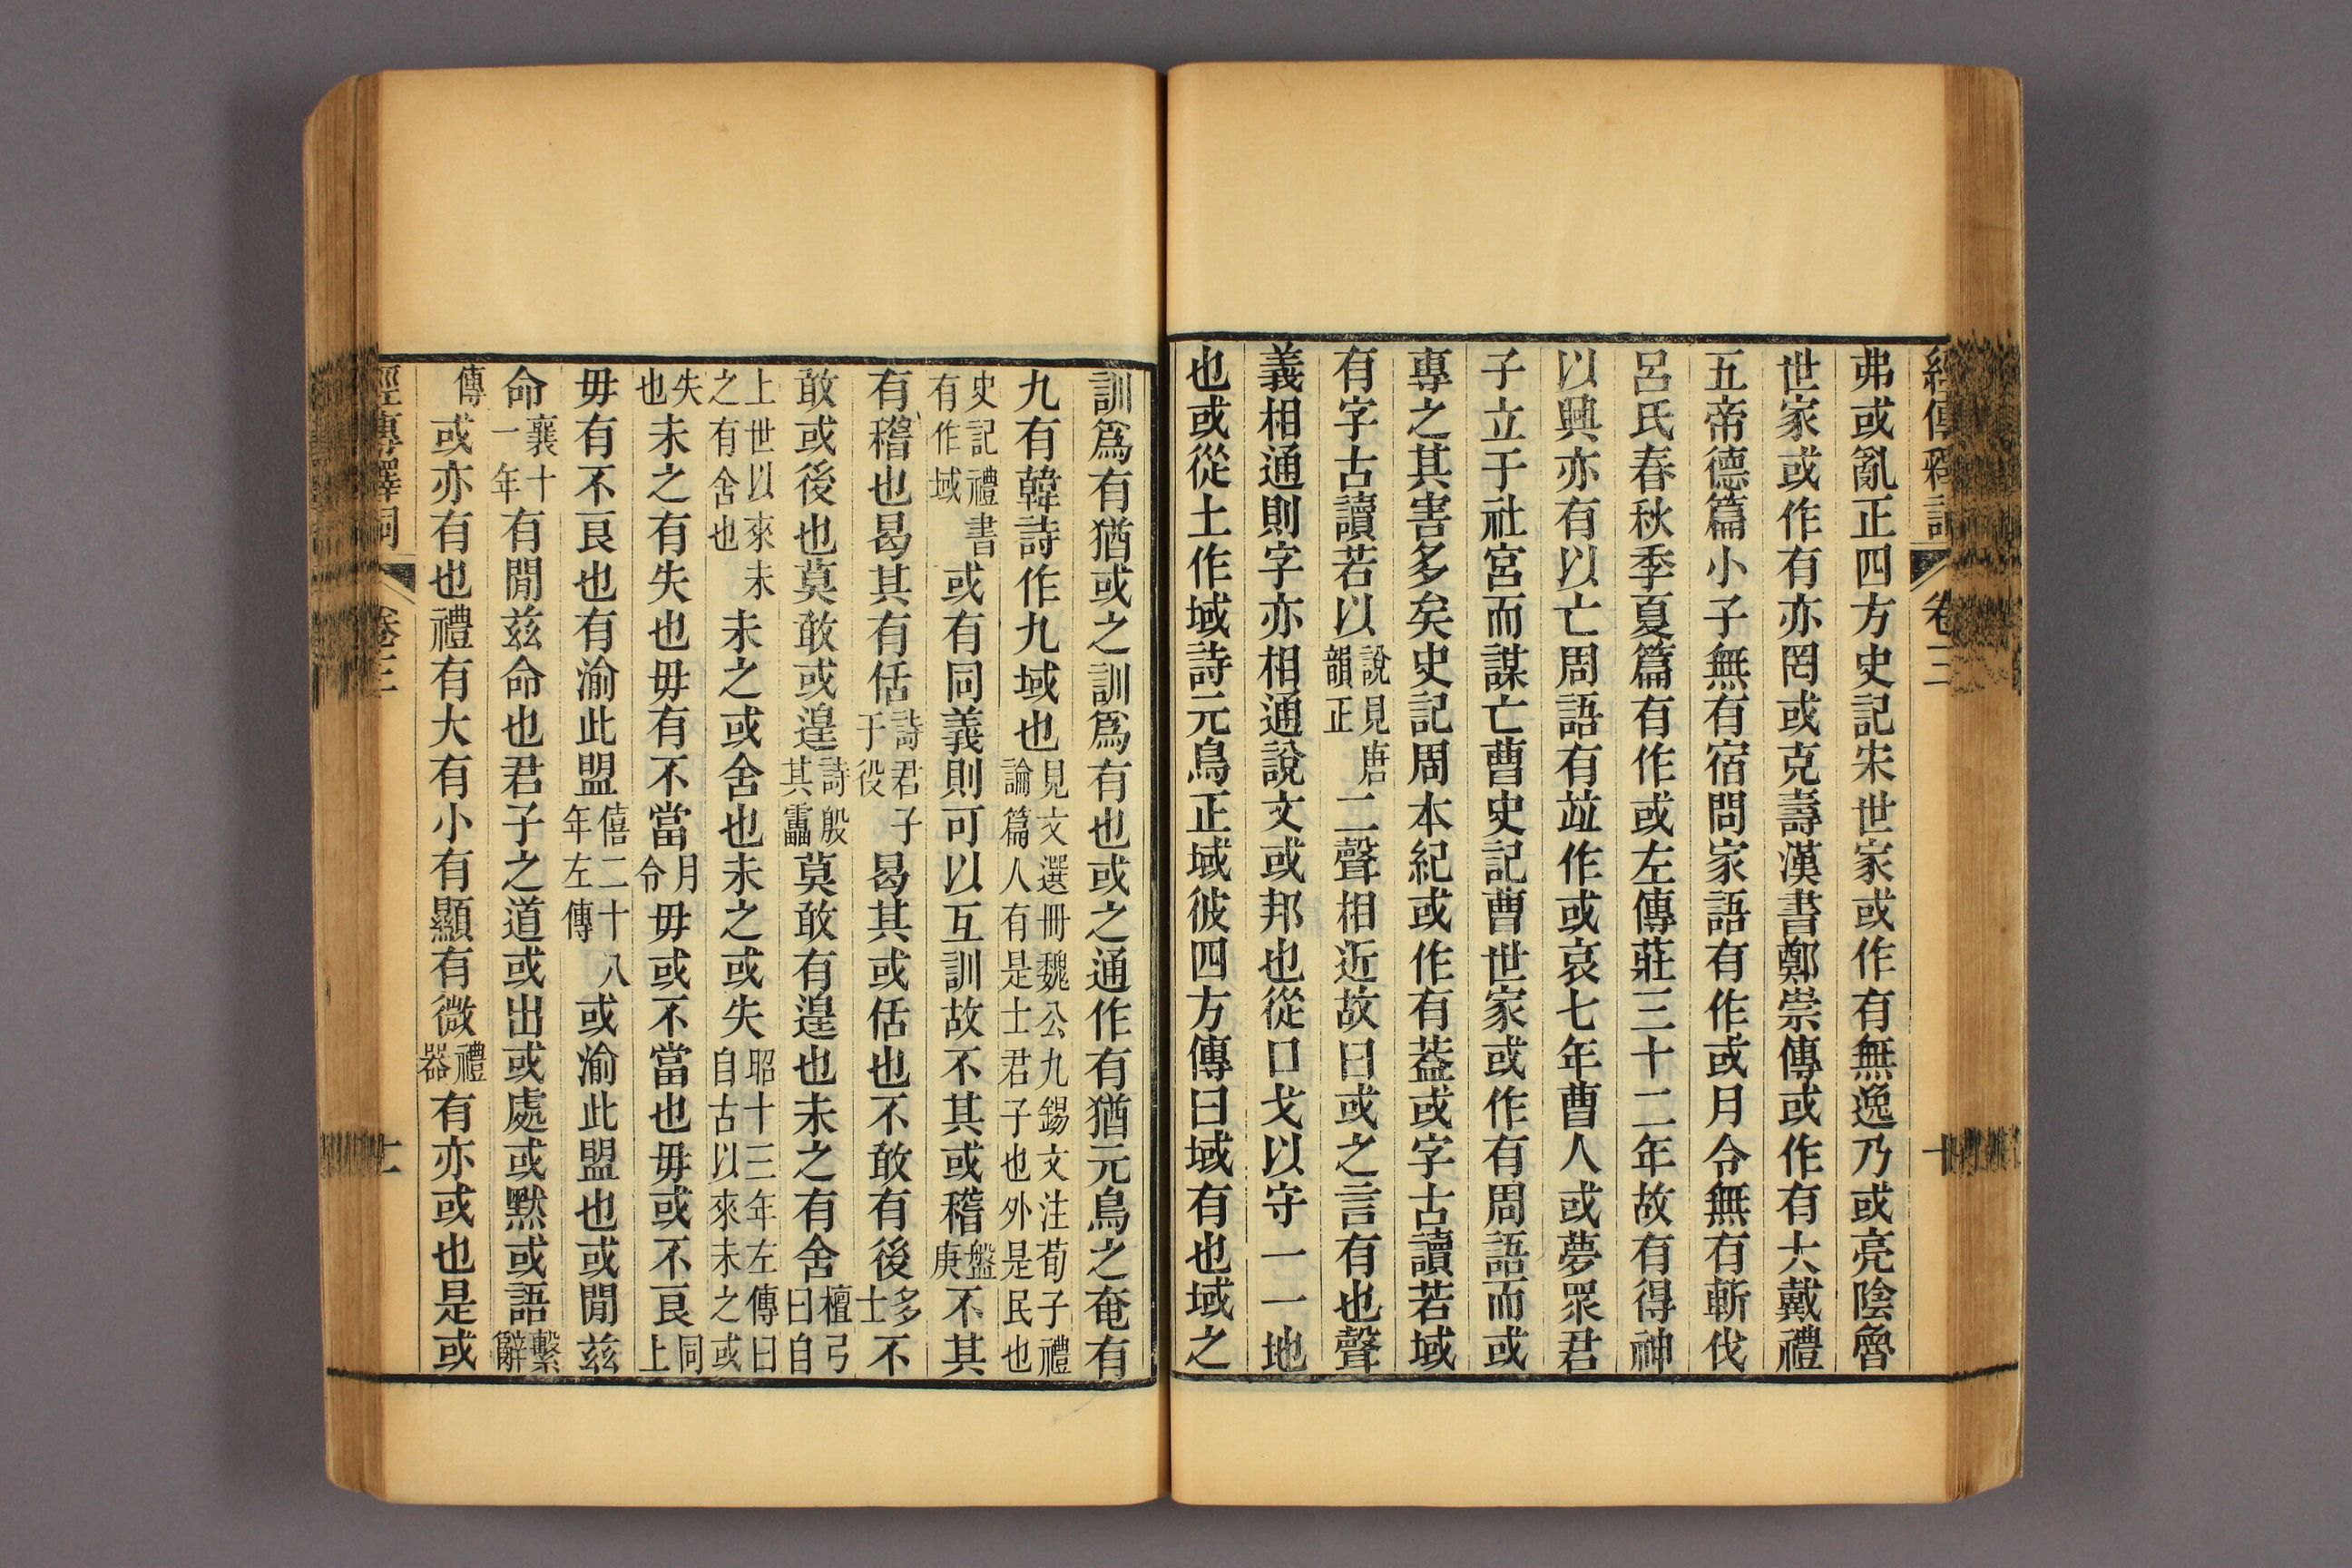 經傳釋詞 卷三 十
弗或亂正四方史記宋世家或作有無逸乃或亮陰魯
世家或作有亦罔或克壽漢書鄭崇傳或作有大戴禮
五帝德篇小子無有宿問家語有作或月令無有斬伐
呂氏春秋季夏篇有作或左傳莊三十二年故有得神
以興亦有以亡周語有竝作或哀七年曹人或夢眾君
子立于社宮而謀亡曹史記曹世家或作有周語而或
專之其害多矣史記周本紀或作有葢或字古讀若域
有字古讀若以說見唐韻正二聲相近故曰或之言有也聲
義相通則字亦相通說文或邦也從口戈以守一一地
也或從土作域詩元鳥正域彼四方傳曰域有也域之
訓爲有猶或之訓爲有也或之通作有猶元鳥之奄有
九有韓詩作九域也見文選冊魏公九錫文注荀子禮論篇人有是士君子也外是民也
史記禮書有作域或有同義則可以互訓故不其或稽盤庚不其
有稽也曷其有佸詩君子于役曷其或佸也不敢有後多士不
敢或後也莫敢或遑詩殷其靁莫敢有遑也未之有舍檀弓曰自
上世以來未之有舍也未之或舍也未之或失昭十三年左傳曰自古以來未之或
失也未之有失也毋有不當月令毋或不當也毋或不良同上
毋有不良也有渝此盟僖二十八年左傳或渝此盟也或閒兹
命襄十一年有閒兹命也君子之道或出或處或默或語繫辭
傳或亦有也禮有大有小有顯有微禮器有亦或也是或
經傳釋詞 卷三 十